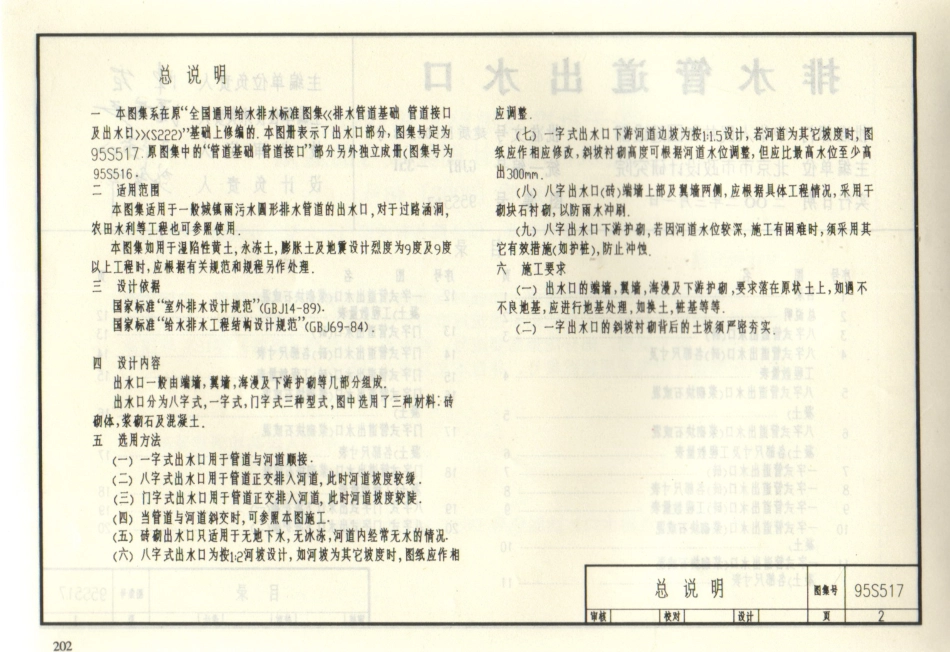 总 说 明
一 本图集系在原“全国通用给水排水标准图集《排水管道基础 管道接口
及出水口》(S222)”基础上修编的.本图册表示了出水口部分,图集号定为
95S517.原图集中的“管道基础 管道接口”部分另外独立成册(图集号为
95S516.
二 适用范围
本图集适用于一般城镇雨污水圆形排水管道的出水口,对于过路涵洞,
农田水利等工程也可参照使用.
本图集如用于湿陷性黄土,永冻土,膨胀土及地震设计烈度为9度及9度
以上工程时,应根据有关规范和规程另作处理.
三 设计依据
国家标准“室外排水设计规范”(GBJ14-89).
国家标准“给水排水工程结构设计规范”(GBJ69-84).
四 设计内容
出水口一般由端墙,翼墙,海漫及下游护砌等几部分组成.
出水口分为八字式,一字式,门字式三种型式,图中选用了三种材料:砖
砌体,浆砌石及混凝土.
五 选用方法
(一) 一字式出水口用于管道与河道顺接.
(二) 八字式出水口用于管道正交排入河道,此时河道坡度较缓.
(三) 门字式出水口用于管道正交排入河道,此时河道坡度较陡.
(四) 当管道与河道斜交时,可参照本图施工.
(五) 砖砌出水口只适用于无地下水,无冰冻,河道内经常无水的情况.
(六) 八字式出水口为按1:2河坡设计,如河坡为其它坡度时,图纸应作相
应调整.
(七) 一字式出水口下游河道边坡为按1:1.5设计,若河道为其它坡度时,图
纸应作相应修改,斜坡衬砌高度可根据河道水位调整,但应比最高水位至少高
出300mm.
(八) 八字出水口(砖)端墙上部及翼墙两侧,应根据具体工程情况,采用干
砌块石衬砌,以防雨水冲刷.
(九) 八字出水口下游护砌,若因河道水位较深,施工有困难时,须采用其
它有效措施(如护桩),防止冲蚀.
六 施工要求
(一) 出水口的端墙,翼墙,海漫及下游护砌,要求落在原状土上,如遇不
不良地基,应进行地基处理,如换土,桩基等等.
(二) 一字出水口的斜坡衬砌背后的土坡须严密夯实.
总 说 明 图集号 95S517
审核 校对 设计 页 2
202